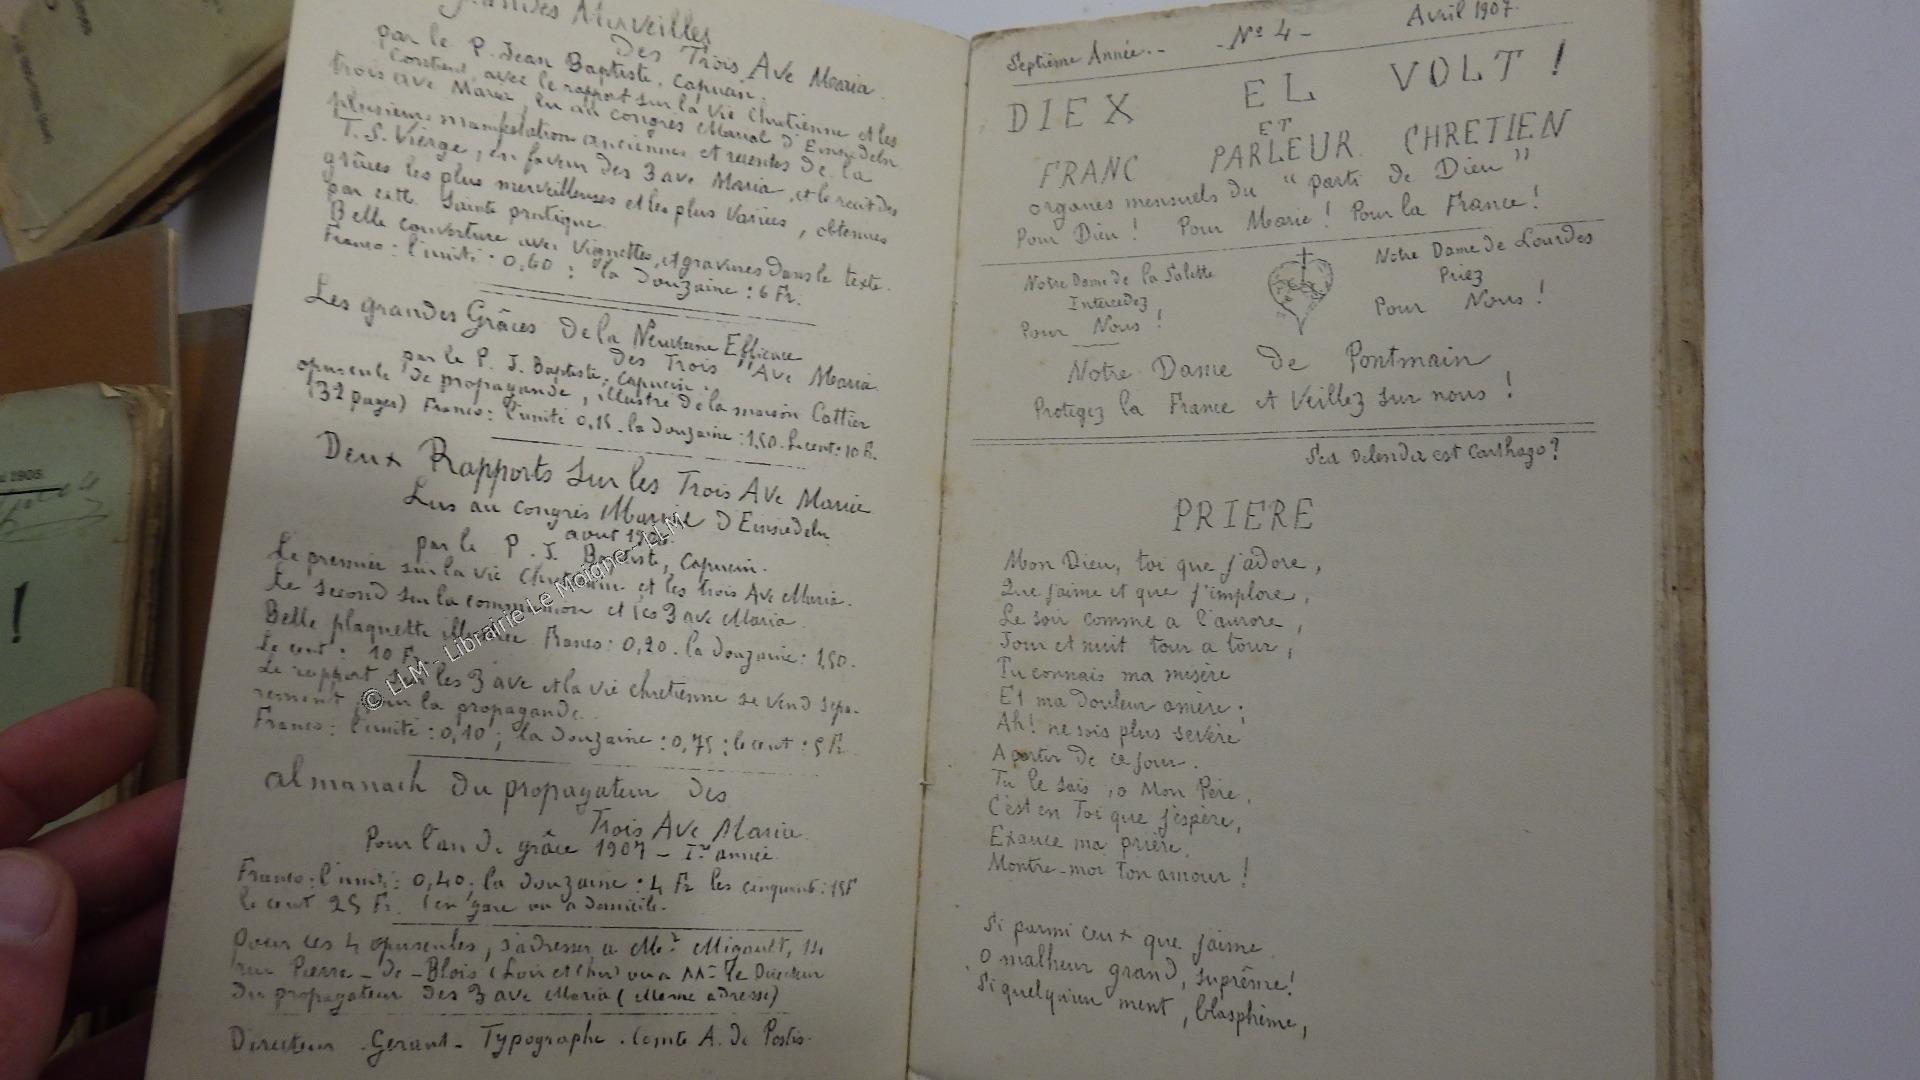 Grandes Merveilles
Des Trois Ave Maria.
par le P. Jean Baptiste, capucin.
Contient, avec le rapport sur la Vie Chretienne et les
trois ave Maria, lu au congrès Marial d'Einsiedeln
plusieurs manifestations anciennes et recentes de la
T. S. Vierge, en faveur des 3 ave Maria, et le recit des
grâces les plus merveilleuses et les plus variées, obtenues
par cette Sainte pratique.
Belle couverture avec Vignettes, et gravures dans le texte.
Franco : l'unité : 0,60 : la Douzaine : 6 Fr.
Les grandes Grâces de la Neuvaine Efficace
des Trois "Ave Maria
par le P. J. Baptiste, Capucin.
opuscule de propagande, illustré de la maison Cattier
(32 pages) Franco : l'unité 0,15 - la Douzaine : 1,50. Le cent : 10 fr.
Deux Rapports Sur les Trois Ave Maria
Lus au congrès Marial d'Einsiedeln
aout 1906.
par le P. J. Baptiste, Capucin.
Le premier sur la vie Chretienne et les trois Ave Maria.
Le second sur la communion et les 3 ave Maria.
Belle plaquette illustrée Franco : 0,20. la Douzaine : 1,50.
Le cent : 10 Fr.
Le rapport sur les 3 ave et la vie chretienne se vend sepa-
rement, pour la propagande.
Franco : l'unité : 0,10 ; la Douzaine : 0,75 ; le cent : 5 Fr.
almanach du propagateur des
Trois Ave Maria
Pour l'an de grâce 1907 - Ière année.
Franco : l'unité : 0,40 ; la Douzaine : 4 Fr les cinquante : 15F
le cent 25 Fr. (en gare ou a domicile.
Pour ces 4 opuscules, s'adresser a Mr Migault, 14
rue Pierre-de-Blois (Loir et Cher) ou a Mr le Directeur
du propagateur des 3 ave Maria (Meme adresse)
Directeur - Gerant - Typographe. Comte A. de Postis.
© LLM - Librairie Le Moigne - LLM
Septième Année. - - No 4 - Avril 1907.
DIEX EL VOLT !
ET
FRANC PARLEUR CHRETIEN
organes mensuels du "parti de Dieu"
Pour Dieu ! Pour Marie ! Pour la France !
Notre Dame de la Salette
Intercedez
Pour Nous !
Notre Dame de Lourdes
Priez
Pour Nous !
Notre Dame de Pontmain
Protegez la France et Veillez sur nous !
Sed Delenda est Carthago ?
PRIERE
Mon Dieu, toi que j'adore,
Que j'aime et que j'implore,
Le soir comme a l'aurore,
Jour et nuit tour a tour,
Tu connais ma misère
Et ma douleur amère ;
Ah ! ne sois plus sevère
A partir de ce jour.
Tu le sais, o Mon Père,
C'est en Toi que j'espère,
Exauce ma prière,
Montre-moi Ton amour !
Si parmi ceux que j'aime
O malheur grand, suprême !
Si quelqu'un ment, blasphème,
1905.
!